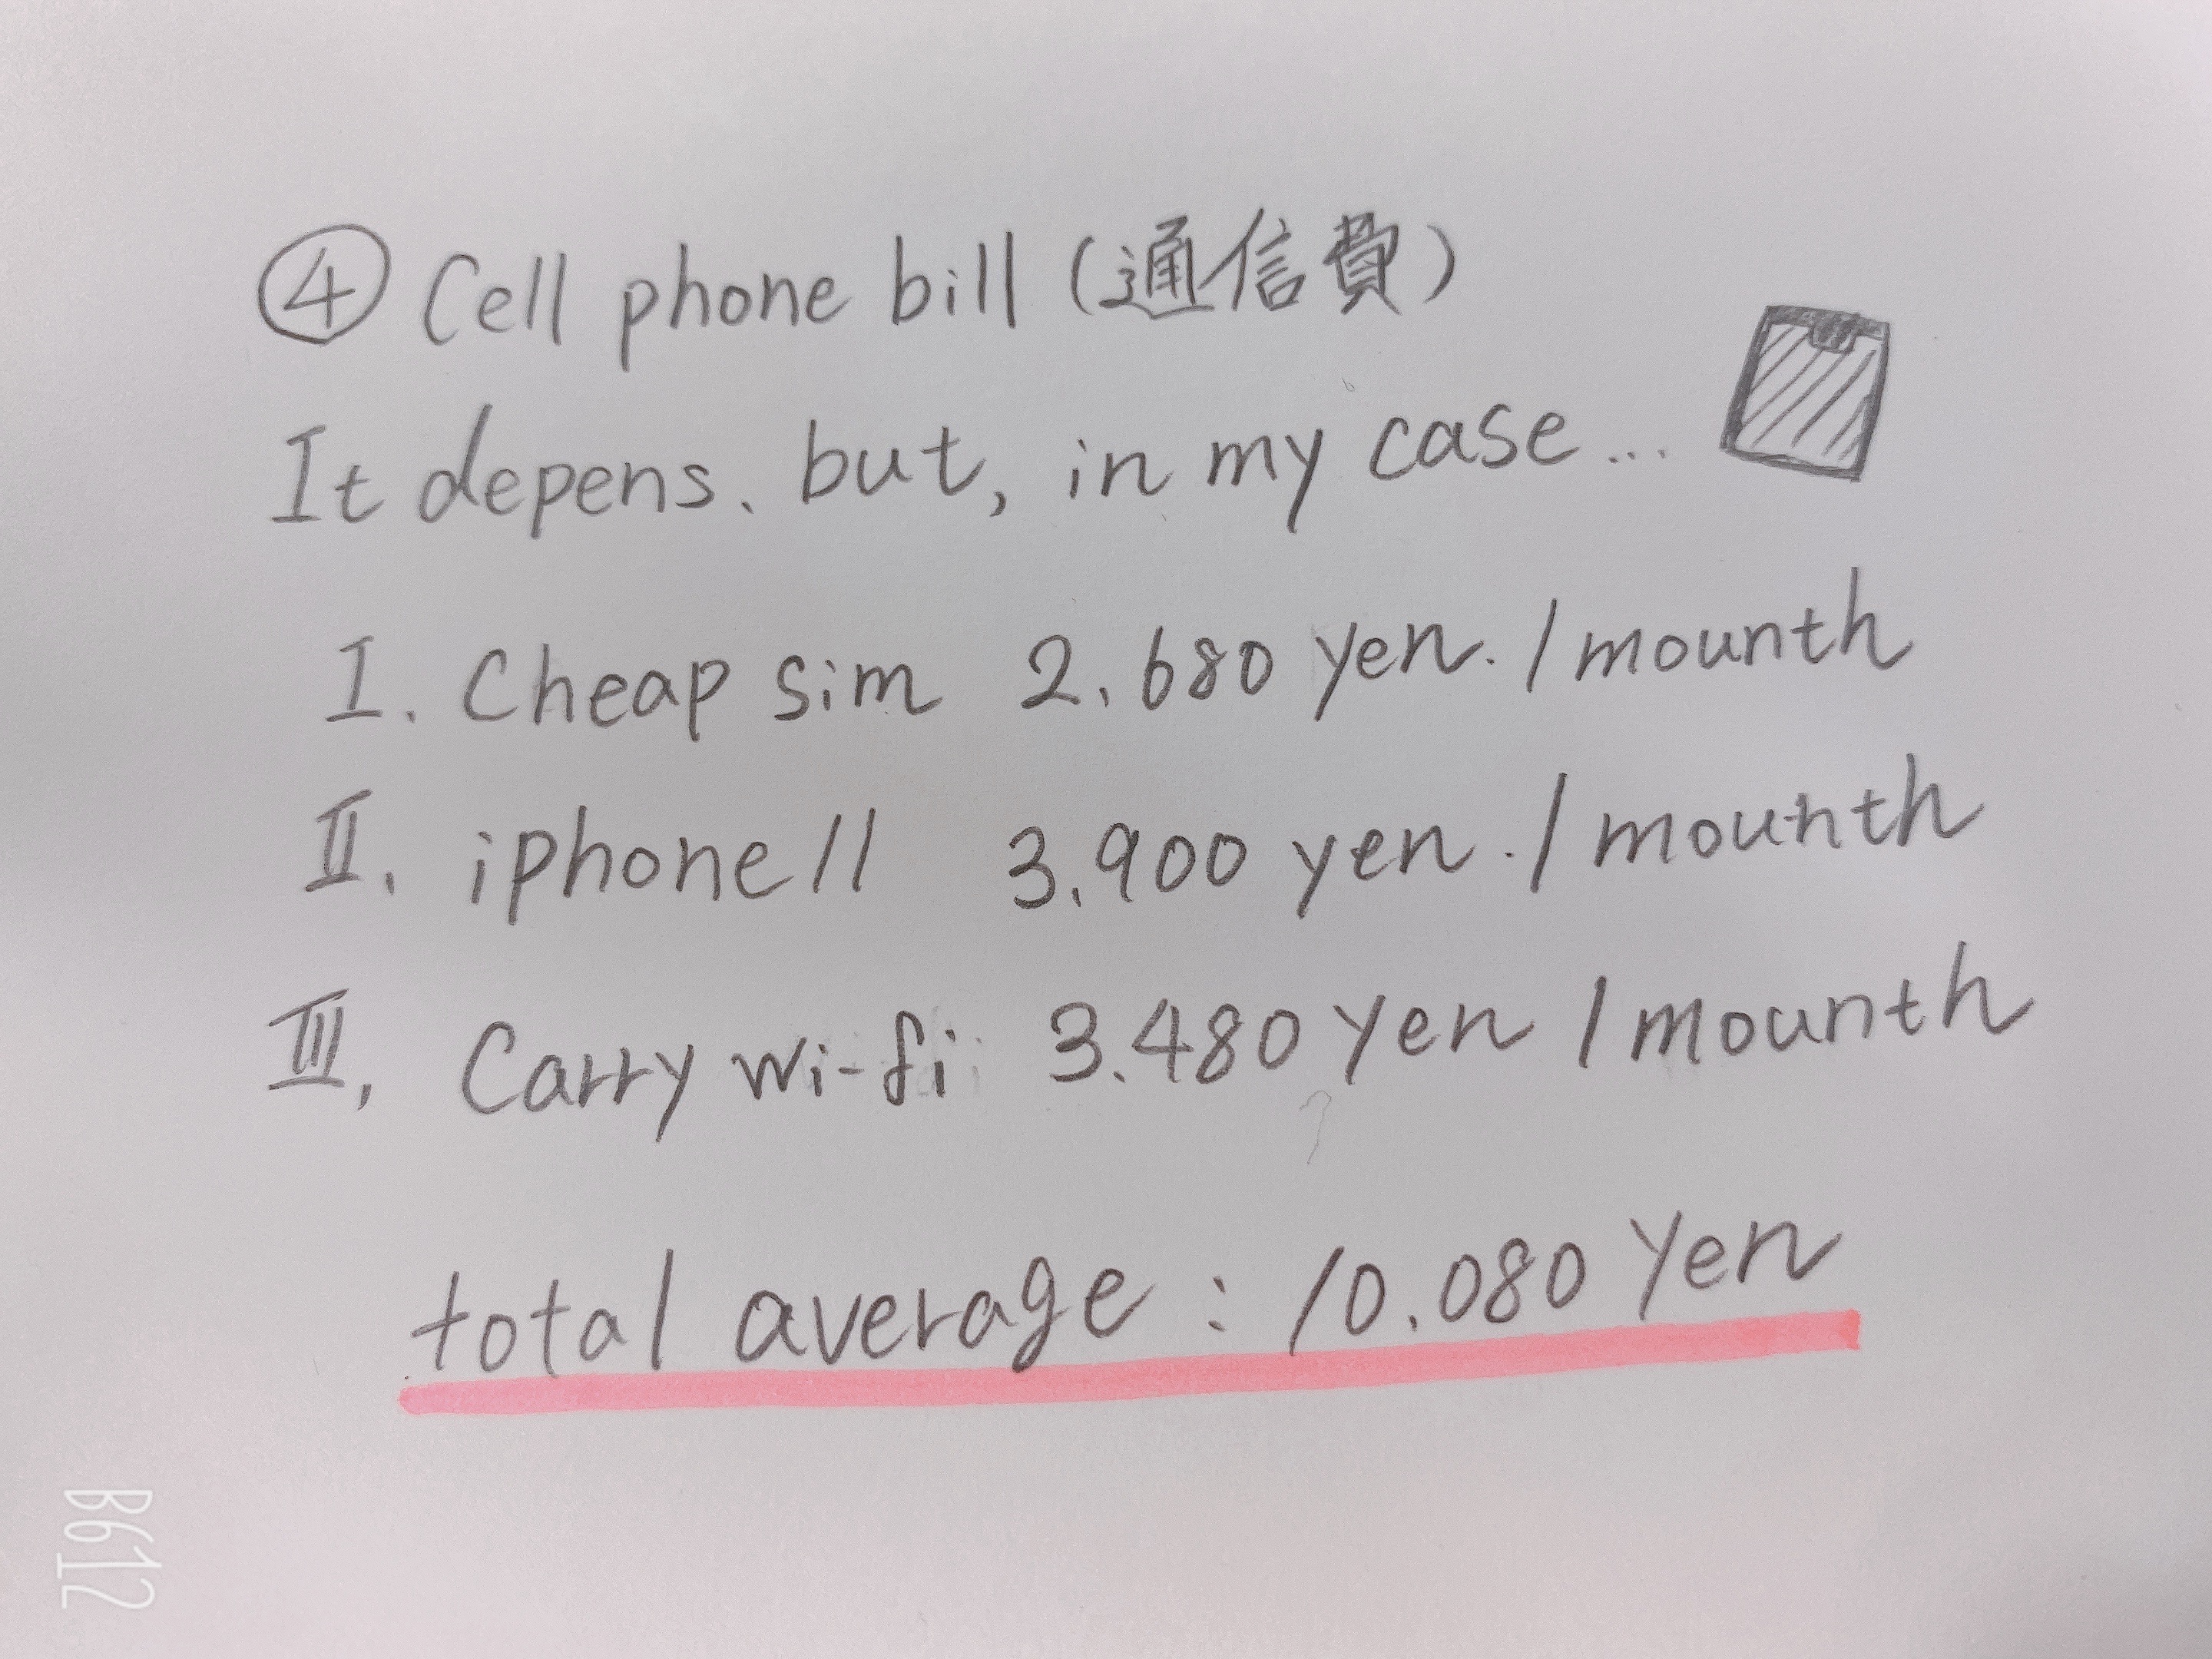 ④ Cell phone bill (通信費)
It depens. but, in my case...
I. Cheap sim 2.680 yen. / mounth
II. iphone 11 3.900 yen. / mounth
III. Carry wi-fi 3.480 yen / mounth
total average : 10.080 yen
B612